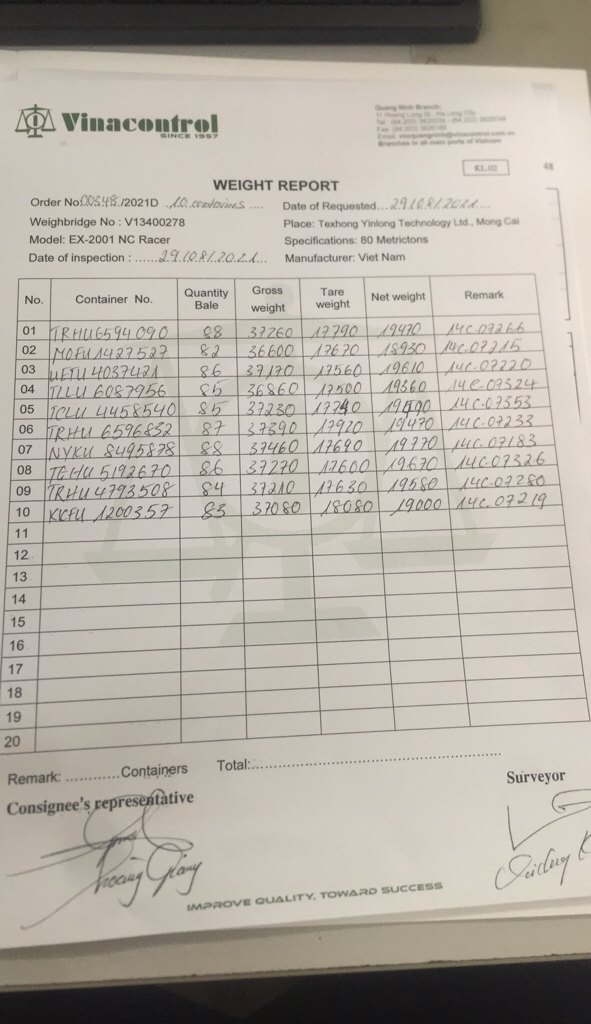 Vinacontrol
SINCE 1957
Quang Ninh Branch:
Branches in all main ports of Vietnam
KL.02
48
WEIGHT REPORT
Order No: 00548 /2021D .10 containers ....
Date of Requested... 29/08/2021 ...
Weighbridge No : V13400278
Place: Texhong Yinlong Technology Ltd., Mong Cai
Model: EX-2001 NC Racer
Specifications: 80 Metrictons
Date of inspection : ...... 29/08/2021 ...
Manufacturer: Viet Nam
No. Container No. Quantity Bale Gross weight Tare weight Net weight Remark
01 TRHU 6594090 88 37260 17790 19470 14C-07266
02 MOFU 1427527 82 36600 17670 18930 14C-07215
03 UETU 4037421 86 37170 17560 19610 14C-07220
04 TLLU 6087956 85 36860 17500 19360 14C-07324
05 TCLU 4458540 85 37230 17740 19490 14C-07353
06 TRHU 6596832 87 37390 17920 19470 14C-07233
07 NYKU 8495878 88 37460 17690 19770 14C-07183
08 TGHU 5192670 86 37270 17600 19670 14C-07326
09 TRHU 4793508 84 37210 17630 19580 14C-07280
10 KKFU 1200357 83 37080 18080 19000 14C-07219
11
12
13
14
15
16
17
18
19
20
Remark: ............Containers Total:..............................
Consignee's representative
Surveyor
Giang
IMPROVE QUALITY, TOWARD SUCCESS